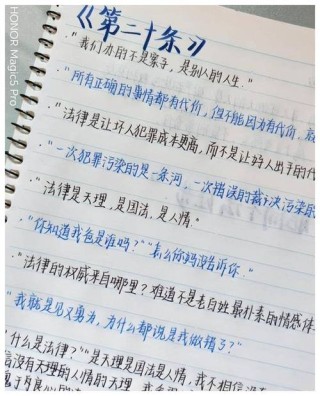 《第二十条》
·"我们办的不是案子，是别人的人生。"
·"所有正确的事情都有代价，但不能因为有代价，就
·"法律是让坏人犯罪成本更高，而不是让好人出手的代
·"一次犯罪污染的是一条河，一次错误的裁决污染的
·"法律是天理，是国法，是人情。"
·"你知道我爸是谁吗？""怎么你妈没告诉你。"
·"法律的权威来自哪里？难道不是老百姓最朴素的情感体
"我就是见义勇为，为什么都说是我做错了？"
什么是法律？"是天理是国法是人情，我不相信没
信没有天理的人情的天理，我
HONOR Magic5 Pro